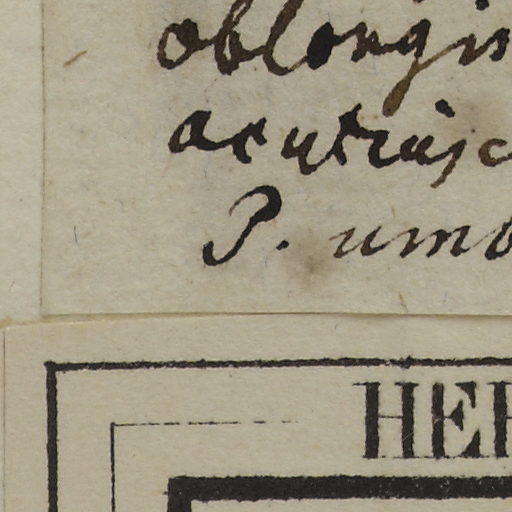 oblongi
acutiusc
P. umb
HER